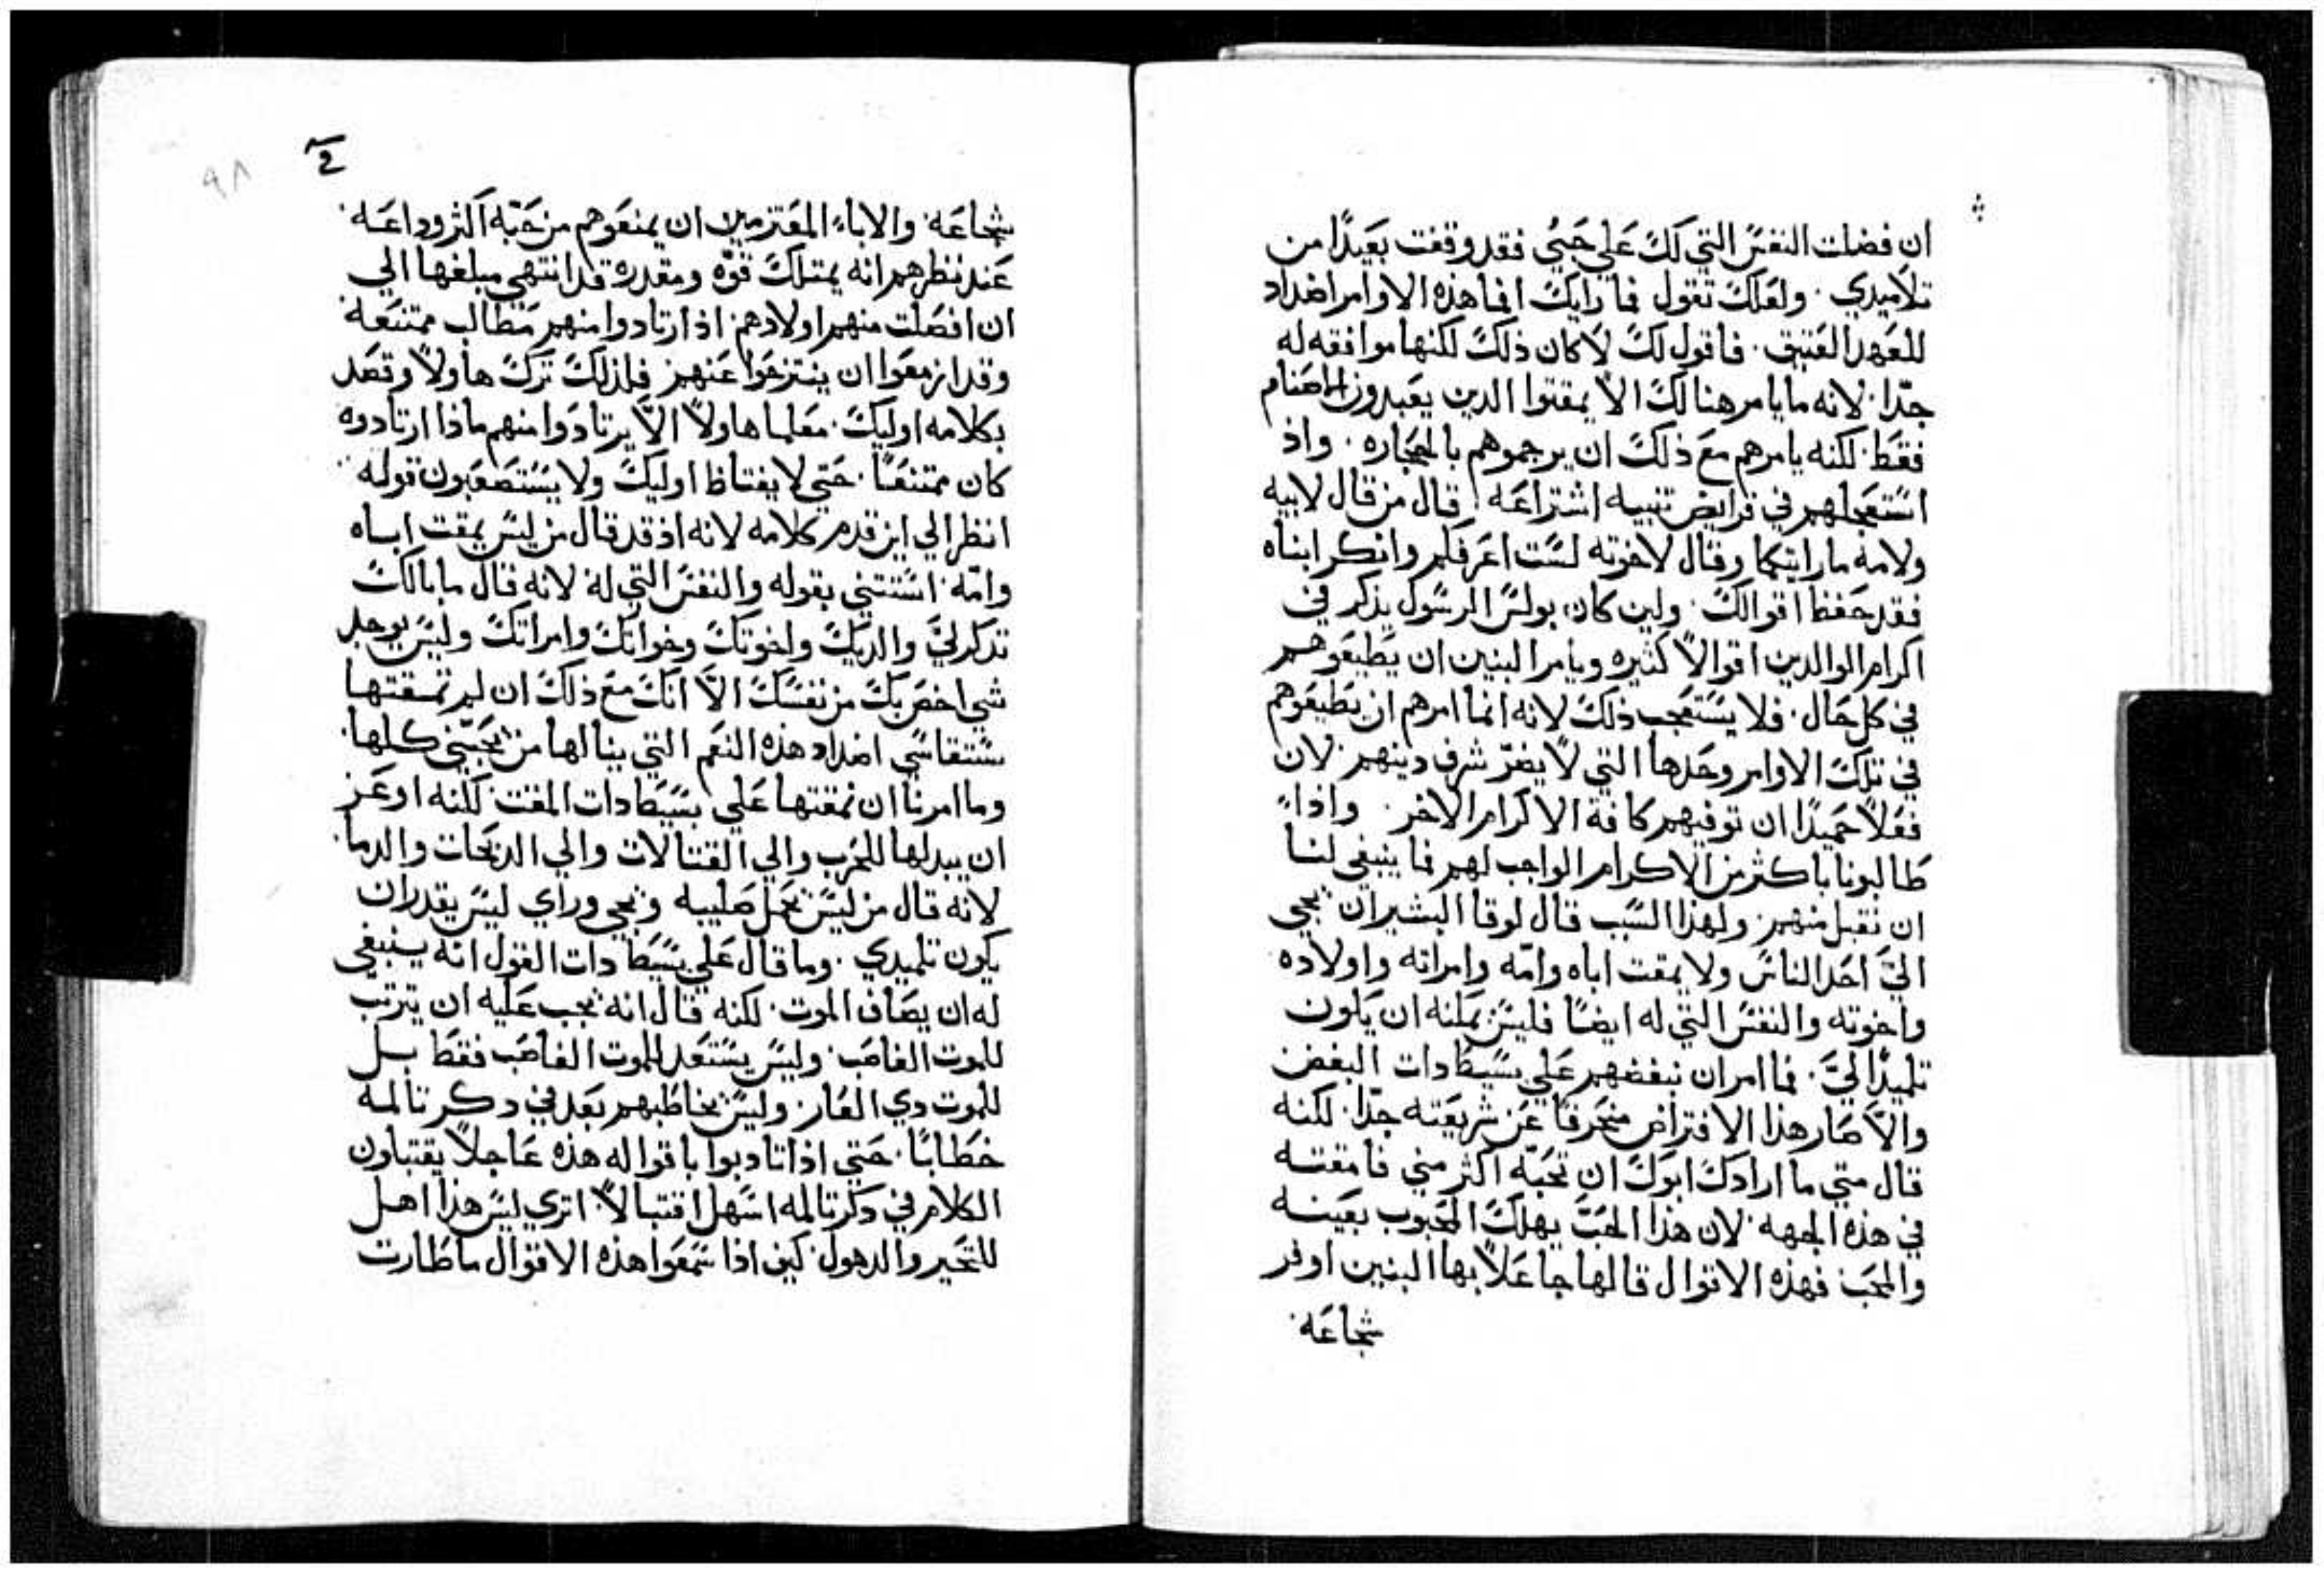 ان فضلت النفس التي لك علي حبي فقد وقفت بعيدًا من
تلاميدي . ولعلك تقول فما رايك افما هذه الاوامر اضداد
للعهد العتيق . فاقول لك لا كان ذلك لكنها موافقه له
جدّا . لانه ما يامر هنالك الا يمقتوا الدين يعبدون الاصنام
فقط . لكنه يامرهم مع ذلك ان يرجموهم بالحجاره . واذ
استعجلهم في فرايض تتنيه اشتراعه . قال من قال لابيه
ولامه ما رايتكما وقال لاخوته لست اعرفكم وانكر ابناه
فقد حفظ اقوالك . ولين كان بولس الرسول يذكر في
اكرام الوالدين اقوالاً كثيره ويامر البنين ان يطيعوهم
في كل حال . فلا يستعجب ذلك لانه انما امرهم ان يطيعوهم
في تلك الاوامر وحدها التي لا يضرّ شرف دينهم . لان
فعلاً حميدًا ان توفيهم كافة الاكرام الاخر . واذا
طالبونا باكثر من الاكرام الواجب لهم فما ينبغي لنا
ان نقبل منهم . ولهذا السبب قال لوقا البشير ان يجي
اليّ احد الناس ولا يمقت اباه وامّه وامراته واولاده
واخوته والنفس التي له ايضًا فليس يمكنه ان يكون
تلميدًا ليَّ . فما امر ان نبغضهم علي بسيطا دات البغض
والاّ صار هذا الافتراض منحرفًا عن شريعته جدّا . لكنه
قال متي ما ارادك ابوك ان تحبّه اكثر مني فامقته
في هذه الجهه . لان هذا الحبّ يهلك المحبوب بعينه
والمحب . فهذه الاقوال قالها جاعلاً بها البنين اوفر
شجاعه .
٩٨
شجاعه . والاباء المعتزمين ان يمنعوهم من حبّه اكثر وداعه .
عند نظرهم انه يمتلك قوّه ومقدره قد انتهي مبلغها الي
ان افصلت منهم اولادهم . اذا ارتادوا منهم مطالب ممتنعه .
وقد ازمعوا ان ينتزحوا عنهم . فلذلك ترك هاولاً وقصد
بكلامه اوليك . معلما هاولاً الاّ يرتادوا منهم ماذا ارتادوه
كان ممتنعًا . حتي لا يغتاظ اوليك ولا يستصعبون قوله .
انظر الي اين قدم كلامه لانه اذ قد قال من ليس يمقت اباه
وامّه . استتني بقوله والنفس التي له . لانه قال ما بالك
تدكر ليَّ والديك واخوتك وخواتك وامراتك وليس يوجد
شي اخص بك من نفسك الاّ انك مع ذلك ان لم تمقتها
ستقاسي اضداد هذه النعم التي ينالها من يحبّني كلها .
وما امرنا ان نمقتها علي بسيطا دات المقت . لكنه اوعز
ان يبدلها للحرب والي القتالات والي الدبحات والدما .
لانه قال من ليس يحمل صليبه ويجي وراي ليس يقدر ان
يكون تلميدي . وما قال علي بسيطا دات القول انه ينبغي
له ان يصاف الموت . لكنه قال انه يجب عليه ان يترتب
للموت الغاصب . وليس يستعد للموت الغاصب فقط بل
للموت دي العار . وليس يخاطبهم بعد في دكر تالمه
خطابًا . حتي اذا تادبوا باقواله هذه عاجلاً يقتبلون
الكلام في دكر تالمه اسهل اقتبالاً . اتري ليس هذا اهل
للتحير والدهول . كيف اذا سمعوا هذه الاقوال ما طارت